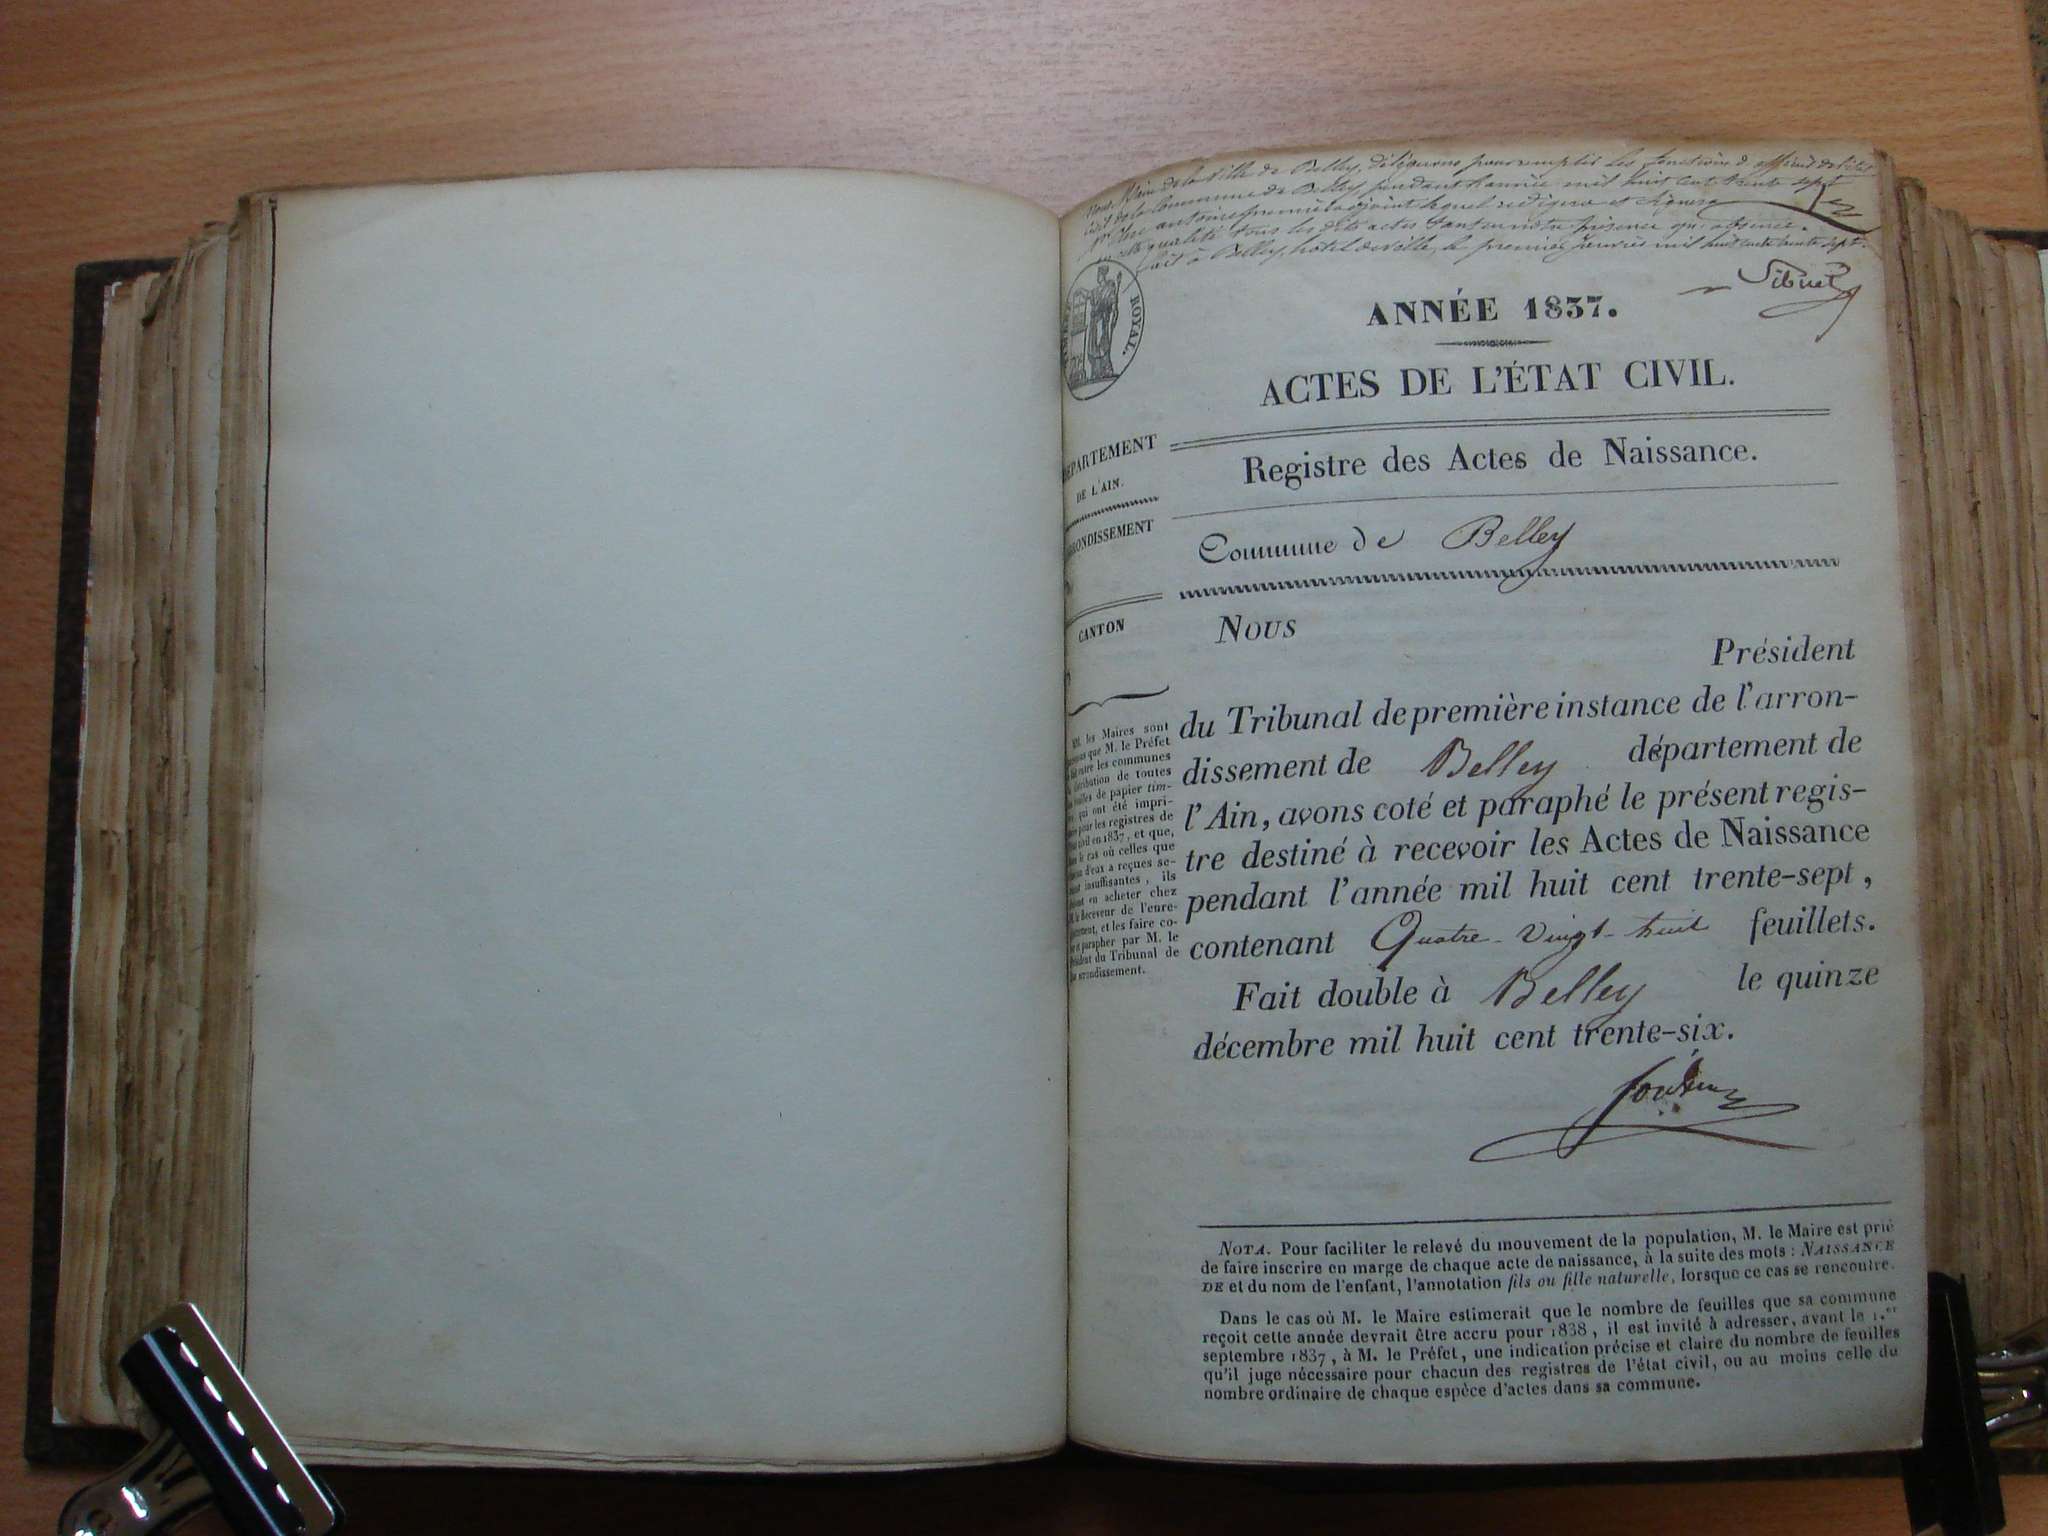 Nous Maire de la Ville de Belley, déléguons pour remplir les fonctions d'officier de l'état
civil de la Commune de Belley pendant l'année mil huit cent trente sept
Mr antoine premier adjoint lequel rédigera et signera
en cette qualité tous les dits actes tant en notre présence qu'absence.
fait à Belley, hôtel de Ville, le premier Janvier mil huit cent trente sept.
Sibuet
ROYAL.
ANNÉE 1837.
ACTES DE L'ÉTAT CIVIL.
DÉPARTEMENT
DE L'AIN.
Registre des Actes de Naissance.
ARRONDISSEMENT
Commune de Belley
CANTON
NOUS
Président
du Tribunal de première instance de l'arron-
dissement de Belley département de
l'Ain, avons coté et paraphé le présent regis-
tre destiné à recevoir les Actes de Naissance
pendant l'année mil huit cent trente-sept,
contenant Quatre-Vingt-huit feuillets.
Fait double à Belley le quinze
décembre mil huit cent trente-six.
MM. les Maires sont
que M. le Préfet
les communes
distribution de toutes
feuilles de papier tim-
qui ont été impri-
pour les registres de
civil en 1837, et que,
le cas où celles que
d'eux a reçues se-
insuffisantes, ils
en acheter chez
le Receveur de l'enre-
et les faire co-
et parapher par M. le
Président du Tribunal de
arrondissement.
NOTA. Pour faciliter le relevé du mouvement de la population, M. le Maire est prié
de faire inscrire en marge de chaque acte de naissance, à la suite des mots : NAISSANCE
DE et du nom de l'enfant, l'annotation fils ou fille naturelle, lorsque ce cas se rencontre.
Dans le cas où M. le Maire estimerait que le nombre de feuilles que sa commune
reçoit cette année devrait être accru pour 1838, il est invité à adresser, avant le 1.er
septembre 1837, à M. le Préfet, une indication précise et claire du nombre de feuilles
qu'il juge nécessaire pour chacun des registres de l'état civil, ou au moins celle du
nombre ordinaire de chaque espèce d'actes dans sa commune.